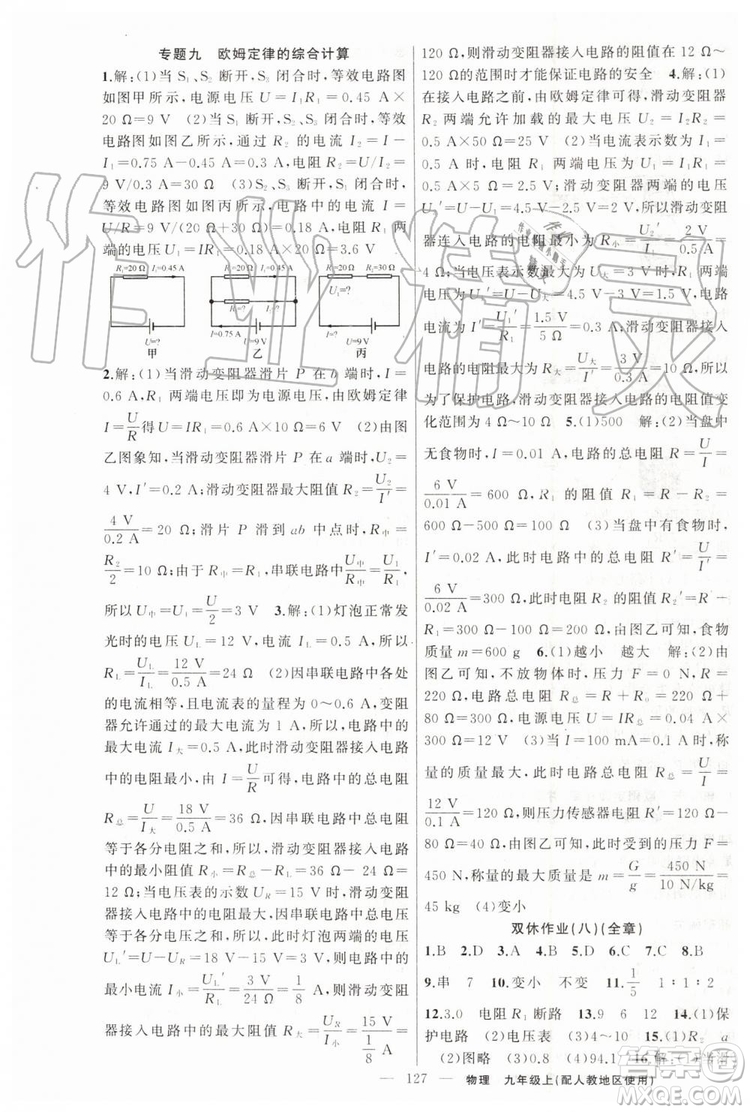 专题九　欧姆定律的综合计算
1.解:(1)当 S₁、S₂ 断开,S 闭合时,等效电路图
如图甲所示,电源电压 U=I₁R₁=0.45 A×
20 Ω=9 V
电路图如图乙所示,通过 R₂ 的电流 I₂=I-
I₁=0.75 A-0.45 A=0.3 A,电阻 R₂=U/I₂=
9 V/0.3 A=30 Ω
等效电路图如图丙所示,电路中的电流 I=
U/R=9 V/(20 Ω+30 Ω)=0.18 A,电阻 R₁ 两
端的电压 U₁=IR₁=0.18 A×20 Ω=3.6 V
R₁=20 Ω I₁=0.45 A
R₁=20 Ω I₁=0.45 A
R₁=20 Ω R₂=30 Ω
U₁=?
U=?
I=0.75 A U=9 V
I=? U=9 V
甲 乙 丙
2.解:(1)当滑动变阻器滑片 P 在 b 端时,I=
0.6 A,R₁ 两端电压即为电源电压,由欧姆定律
I=U/R得 U=IR₁=0.6 A×10 Ω=6 V (2)由图
乙图象知,当滑动变阻器滑片 P 在 a 端时,U₂=
4 V,I′=0.2 A;滑动变阻器最大阻值 R₂=U₂/I′=
4 V/0.2 A=20 Ω;滑片 P 滑到 ab 中点时,R中=
R₂/2=10 Ω;由于 R₁=R中,串联电路中U中/R中=U₁/R₁,
所以 U中=U₁=U/2=3 V 3.解:(1)灯泡正常发
光时的电压 UL=12 V,电流 IL=0.5 A,
RL=UL/IL=12 V/0.5 A=24 Ω (2)因串联电路中各处
的电流相等,且电流表的量程为 0~0.6 A,变阻
器允许通过的最大电流为 1 A,所以电路中的最
大电流为 I大=0.5 A;此时滑动变阻器接入电路
中的电阻最小,由 I=U/R可得,电路中的总电阻
R总=U/I大=18 V/0.5 A=36 Ω,因串联电路中总电阻
等于各分电阻之和,所以滑动变阻器接入电路
中的最小阻值:R滑小=R总-RL=36 Ω-24 Ω=
12 Ω;当电压表的示数 UR=15 V 时,滑动变阻
器接入电路中的电阻最大,因串联电路中总电
压等于各分电压之和,所以,此时灯泡两端的电
压 UL′=U-UR=18 V-15 V=3 V,则电路中
的最小电流 I小=UL′/RL=3 V/24 Ω=1/8 A,滑动变阻
器接入电路中的最大电阻 R滑大=UR/I小=15 V/(1/8 A)=
120 Ω,所以滑动变阻器接入电路的阻值在 12 Ω~
120 Ω 的范围时才能保证电路的安全 4.解:(1)
在接入电路之前,由欧姆定律可得,滑动变阻器
R₂ 两端允许加载的最大电压 U₂=I₂R₂=
0.5 A×50 Ω=25 V (2)当电流表示数为 I=
0.5 A 时,R₁ 两端电压 U₁=IR₁=0.5 A×
5 Ω=2.5 V,滑动变阻器两端的电压
U₂=U-U₁=4.5 V-2.5 V=2 V,滑动变阻
器连入电路的电阻最小为 R小=U₂/I=2 V/0.5 A=
4 Ω;当电压表示数最大为 U大=3 V 时,R₁ 两端
电压为 U₁′=U-U大=4.5 V-3 V=1.5 V,电路
电流为 I′=U₁′/R₁=1.5 V/5 Ω=0.3 A,滑动变阻器接入
电路的电阻最大为 R大=U大/I′=3 V/0.3 A=10 Ω,所以
为了保护电路,滑动变阻器接入电路的电阻值变
化范围为 4~10 Ω 5.(1)500 解:(2)当盘中
无食物时,I=0.01 A,电路的总电阻 R=U/I=
6 V/0.01 A=600 Ω,R₂ 的阻值为:R₁=R-R₂=
600 Ω-500 Ω=100 Ω (3)当盘中有食物时,
I′=0.02 A,此时电路的总电阻 R′=U/I′=
6 V/0.02 A=300 Ω,此时电阻 R₂ 的阻值 R₂′=R′-
R₁=300 Ω-100 Ω=200 Ω,由图乙可知,食物
质量 m=600 g 6.(1)越小 越大 解:(2)由
图乙可知,不放物体时,压力 F=0,电阻 R=
220 Ω,电路总电阻 R总=R+R₀=220 Ω+
80 Ω=300 Ω,电源电压 U=IR总=0.04 A×300 Ω=
12 V (3)当 I=100 mA=0.1 A 时,R总′=U/I=
12 V/0.1 A=120 Ω,则压力传感器电阻 R′=120 Ω-
80 Ω=40 Ω,由图乙可知,此时受到的压力 F=
450 N,称量的最大质量为:m=G/g=450 N/10 N/kg=
45 kg (4)变小
双休作业(八)(全章)
1.B 2.D 3.A 4.D 5.C 6.C 7.C 8.B
9.串 7 10.变小 不变 11.1/5 1∶1∶2
12.3.0 电阻 R₁ 断路 13.9 6 12 14.(1)保
护电路 (2)电压表 (3)0.01 15.(1)R₂ a
(2)图略 (3)②2 (4)94.1 16.解:
127 物理 九年级上(配人教地区使用)
作业精灵